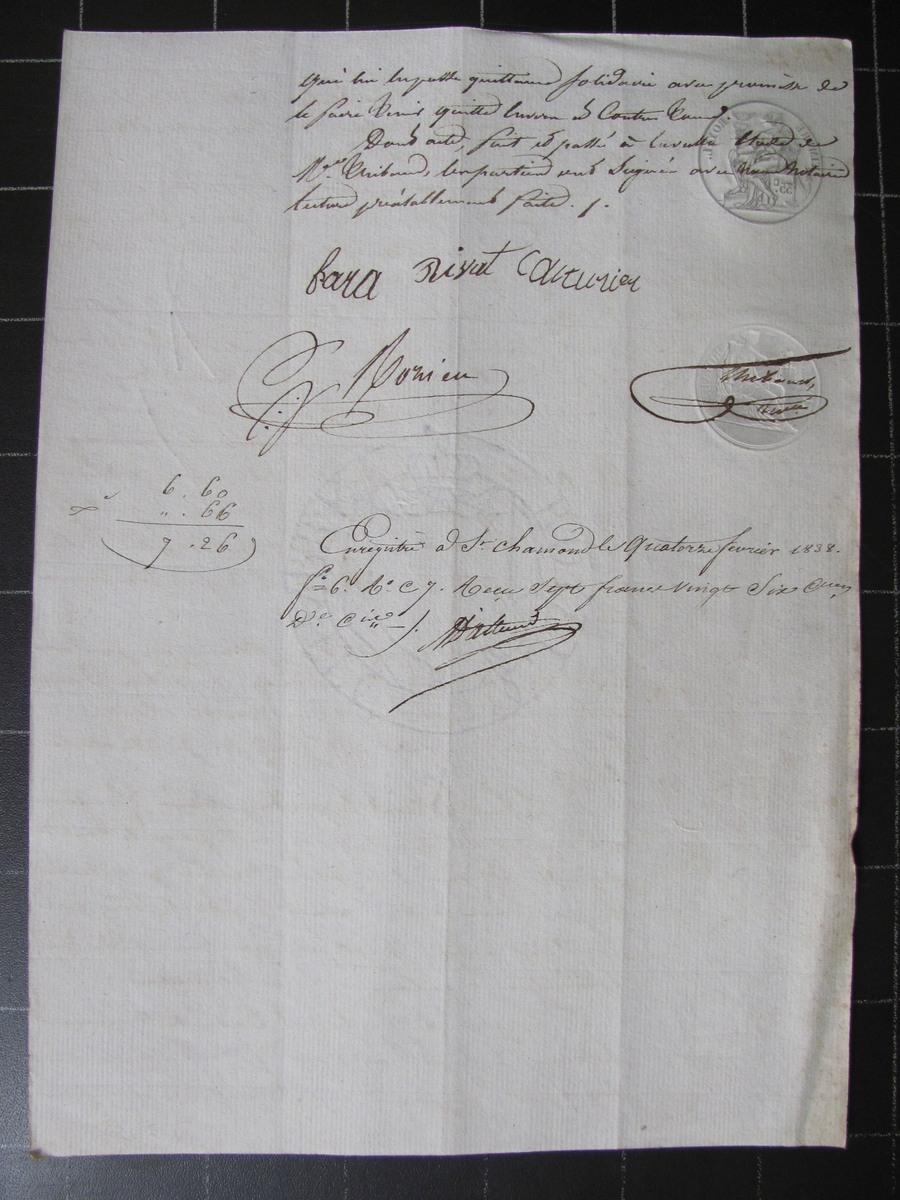 qui lui en passe quittance solidaire avec promesse de
le faire tenir quitte envers et contre tous.
Dont acte, fait et passé à Lavalla Etude de
Me Thibaud, les parties ont Signé avec nous Notaire
lecture préalablement faite. /.
fara rivat Couturier
Monieu
Thibaud,
6. 60
". 66
7. 26
Enregistré à St chamond le Quatorze février 1838.
fo 6. Ro C 7. Recu Sept francs Vingt Six Cmes
De Cis /.